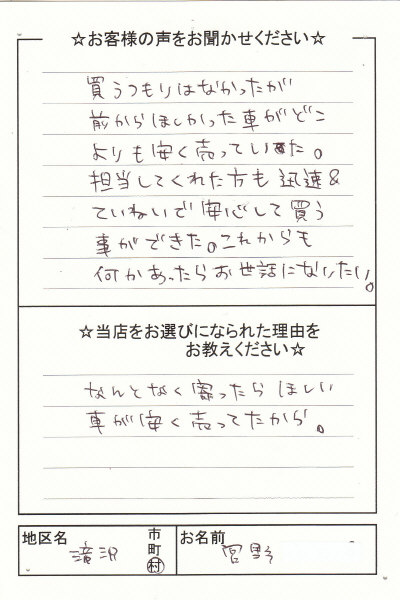 ☆お客様の声をお聞かせください☆
買うつもりはなかったが
前からほしかった車がどこ
よりも安く売っていた。
担当してくれた方も迅速&
ていねいで安心して買う
事ができた。これからも
何かあったらお世話になりたい。
☆当店をお選びになられた理由を
お教えください☆
なんとなく寄ったらほしい
車が安く売ってたから。
地区名 滝沢 市町村
お名前 宮野